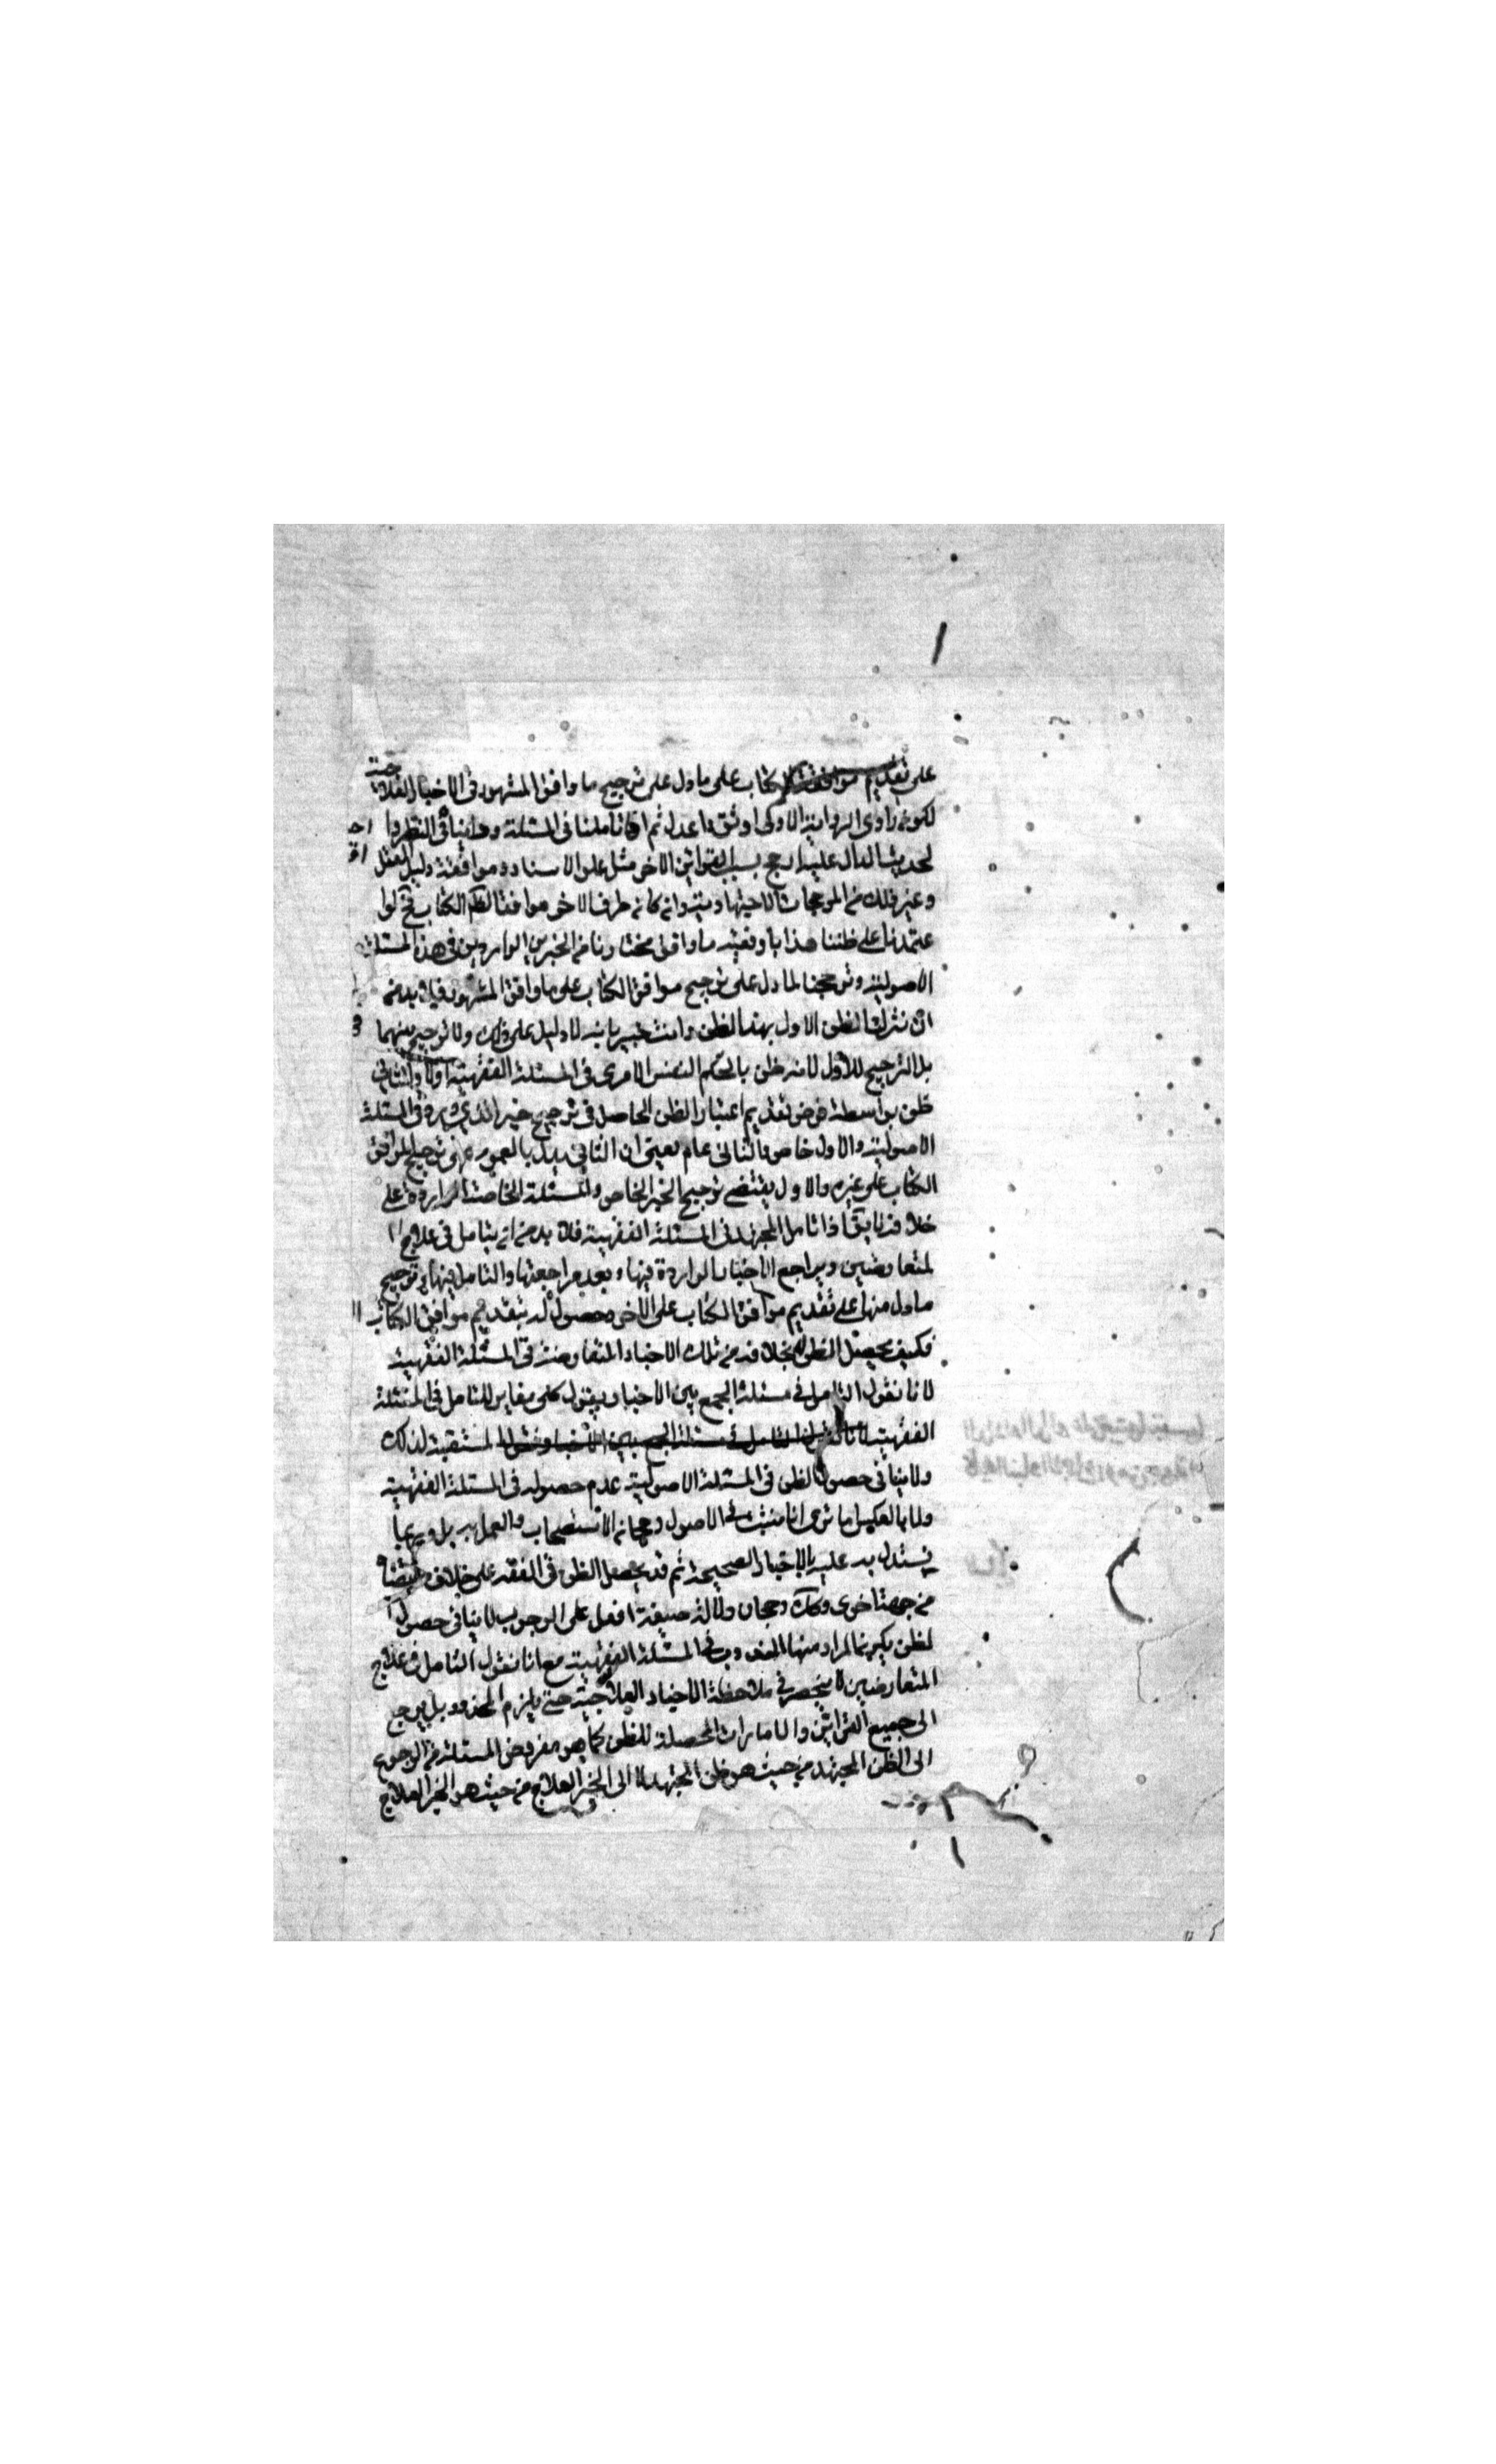 على تقديم موافقة الكتاب على ما دل على ترجيح ما وافق المشهور في الاخبار العلاجية
لكون راوي الرواية الاولى اوثق واعدل ثم اذا تاملنا في المسئلة وصار النظر
لحديث الدال عليه ارجح بسبب القراين الاخر مثل علو الاسناد وموافقة دليل العقل
وغير ذلك من المرجحات الاجتهادية وان كان طرف الاخر موافقا لظاهر الكتاب فح لو
اعتمدنا على ظننا هذا ما وفقية ما وافق مختارنا من الخبرين الواردين في هذه المسئلة
الاصولية وترجحنا لما دل على ترجيح موافق الكتاب على ما وافق المشهور فلا بد من
ان نترك الظن الاول بهذا الظن وانت خبير بانه لا دليل على ذلك ولا ترجيح بينهما
بل الترجيح للاول لانه ظن بالحكم النفس الامري في المسئلة الفقهية اولا والثاني
ظن بواسطة فرض تقديم اعتبار الظن الحاصل في ترجيح خبر الذي ورد في المسئلة
الاصولية والاول خاص والثاني عام يعني ان الثاني يدل بالعموم على ترجيح الموافق
الكتاب على غيره والاول يقتضي ترجيح الخبر الخاص والمسئلة الخاصة الواردة على
خلافه لا يق اذا تامل المجتهد في المسئلة الفقهية فلا بد من ان يتامل في علاج ا
لمتعارضين ويراجع الاخبار الواردة فيها وبعد مراجعتها والتامل فيها وترجيح
ما دل منها على تقديم موافق الكتاب على الاخر وحصول له بتقديم موافق الكتاب
فكيف يحصل الظن بخلافه من تلك الاخبار المتعارضة في المسئلة الفقهية
لانا نقول التامل في مسئلة الجمع بين الاخبار بقول كلى مغاير للتامل في المسئلة
الفقهية لانا نقول التامل في مسئلة الجمع بين الاخبار بقول المستقية لذلك
ولا ينافي حصول الظن في المسئلة الاصولية عدم حصوله في المسئلة الفقهية
ولا بالعكس اما ترى انا نثبت في الاصول رجحان الاستصحاب والعمل به بل وربما
يستدل به عليه بالاخبار الصحيحة ثم قد يحصل الظن في الفقه على خلاف مقتضاه
من جهة اخرى وكك رجحان دلالة صيغة افعل على الوجوب لا ينافي حصول ا
لظن بكون المراد منها المندوب في المسئلة الفقهية مع انا نقول التامل في علاج
المتعارضين لا ينحصر في ملاحظة الاخبار العلاجية حتى يلزم المحذور بل يرجع
الى جميع القراين والامارات المحصلة للظن كما هو مفروض المسئلة من الرجوع
الى الظن المجتهد من حيث هو ظن المجتهد لا الى الخبر العلاج من حيث هو الخبر العلاج